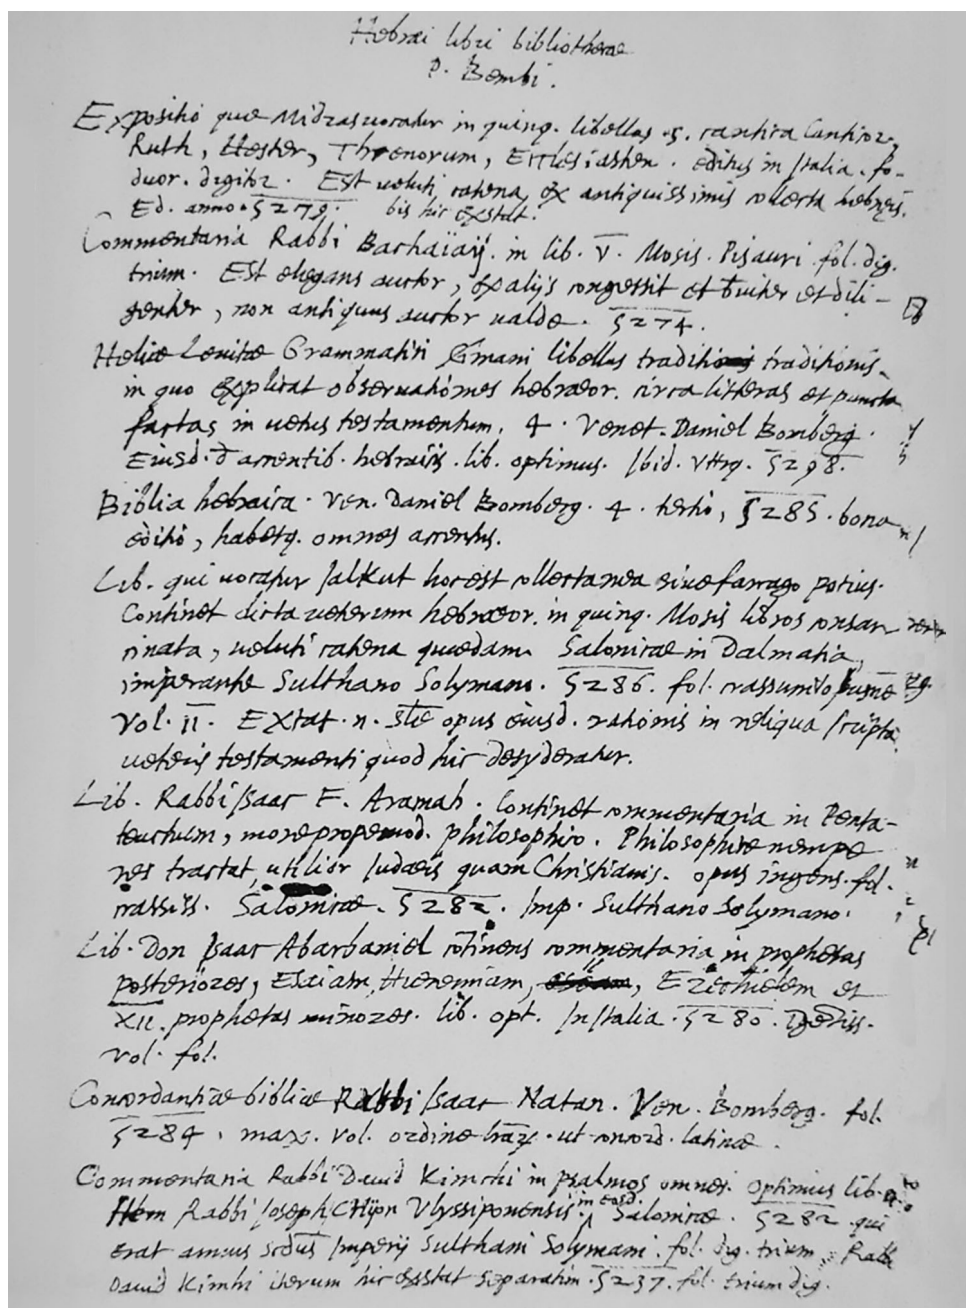 Hebraei libri bibliothecae
P. Bembi.
Expositio quae Midras vocatur in quinq. libellos .s. cantica Canticor.,
Ruth, Hester, Threnorum, Ecclesiasten. editus in Italia. fo-
duor. digitor. Est veluti catena ex antiquissimis collecta hebręis.
Ed. anno. 5279. bis hic exstat.
Commentaria Rabbi Bachaïaij. in lib. V. Mosis. Pisauri fol. dig.
trium. Est elegans auctor, ex alijs congessit et breviter et dili-
genter, non antiquus auctor valde. 5274.
Heliae Levitae Grammatici Germani libellus traditionis
in quo explicat observationes hebraeor. circa litteras et puncta
factas in vetus testamentum. 4. Venet. Daniel Bomberg.
Eiusd. de accentib. hebraicis. lib. optimus. Ibid. Utrq. 5298.
Biblia hebraica. Ven. Daniel Bomberg. 4. tertio, 5285. bona
editio, habetq. omnes accentus.
Lib. qui vocatur Ialkut hoc est collectanea sive farrago potius.
Continet dicta veterum hebraeor. in quinq. Mosis libros consar-
cinata, veluti catena quaedam. Salonicae in Dalmatia,
imperante Sulthano Solymano. 5286. fol.
Vol. II. Extat. n. opus eiusd. rationis in reliqua scripta
veteris testamenti quod hic desyderatur.
Lib. Rabbi Isaac F. Aramah. Continet commentaria in Penta-
teuchum, more propemod. philosophico. Philosophice nempe
res tractat, utilior Iudaeis quam Christianis. opus ingens. fol.
crassiss. Salonicae. 5282. Imp. Sulthano Solymano.
Lib. Don Isaac Abarbaniel cōtinens commentaria in prophetas
posteriores, Esaiam, Hieremiam, Ezechielem et
XII. prophetas minores. lib. opt. In Italia. 5280.
vol. fol.
Concordantiae bibliae Rabbi Isaac Natan. Ven. Bomberg. fol.
5284. max. vol. ordine ut concord. latinae.
Commentaria Rabbi David Kimchi in psalmos omnes. optimus lib.
Item Rabbi Ioseph Ulyssiponensis in eosd. Salonicae. 5282. qui
erat annus Imperij Sulthani Solymani. fol. dig. trium. Rabbi
David Kimhi iterum hic exstat separatim. 5237. fol. trium dig.